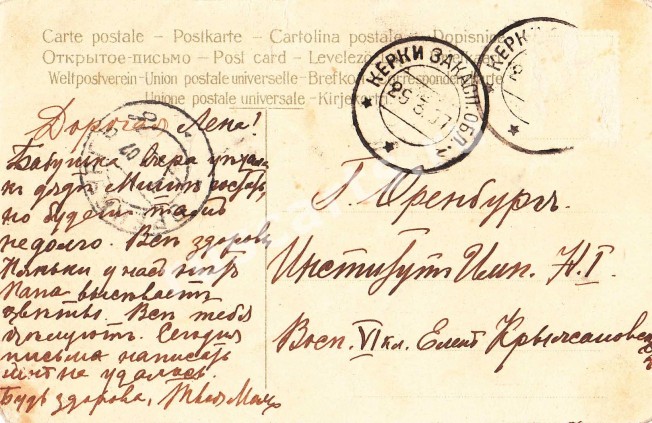 Carte postale – Postkarte – Cartolina postale – Dopisnice
Открытое-письмо – Post card – Levelező
Weltpostverein-Union postale universelle-Brefkort-Correspondenzkarte
Unione postale universale - Kirjekortti
КЕРКИ ЗАКАСП. ОБЛ.
25 5 07
КЕРКИ
Дорогая Лена!
Бабушка вчера уехала
къ дядѣ Мишѣ гостить,
но будетъ тамъ
недолго. Всѣ здоровы
Няньки у насъ нѣтъ
Папа высѣваетъ
цвѣты. Всѣ тебя
цѣлуютъ. Сегодня
письма написать
мнѣ не удалось.
Будь здорова, Твоя Мама
Г. Оренбургъ.
Институтъ Имп. Н. I.
Восп. VI кл. Еленѣ